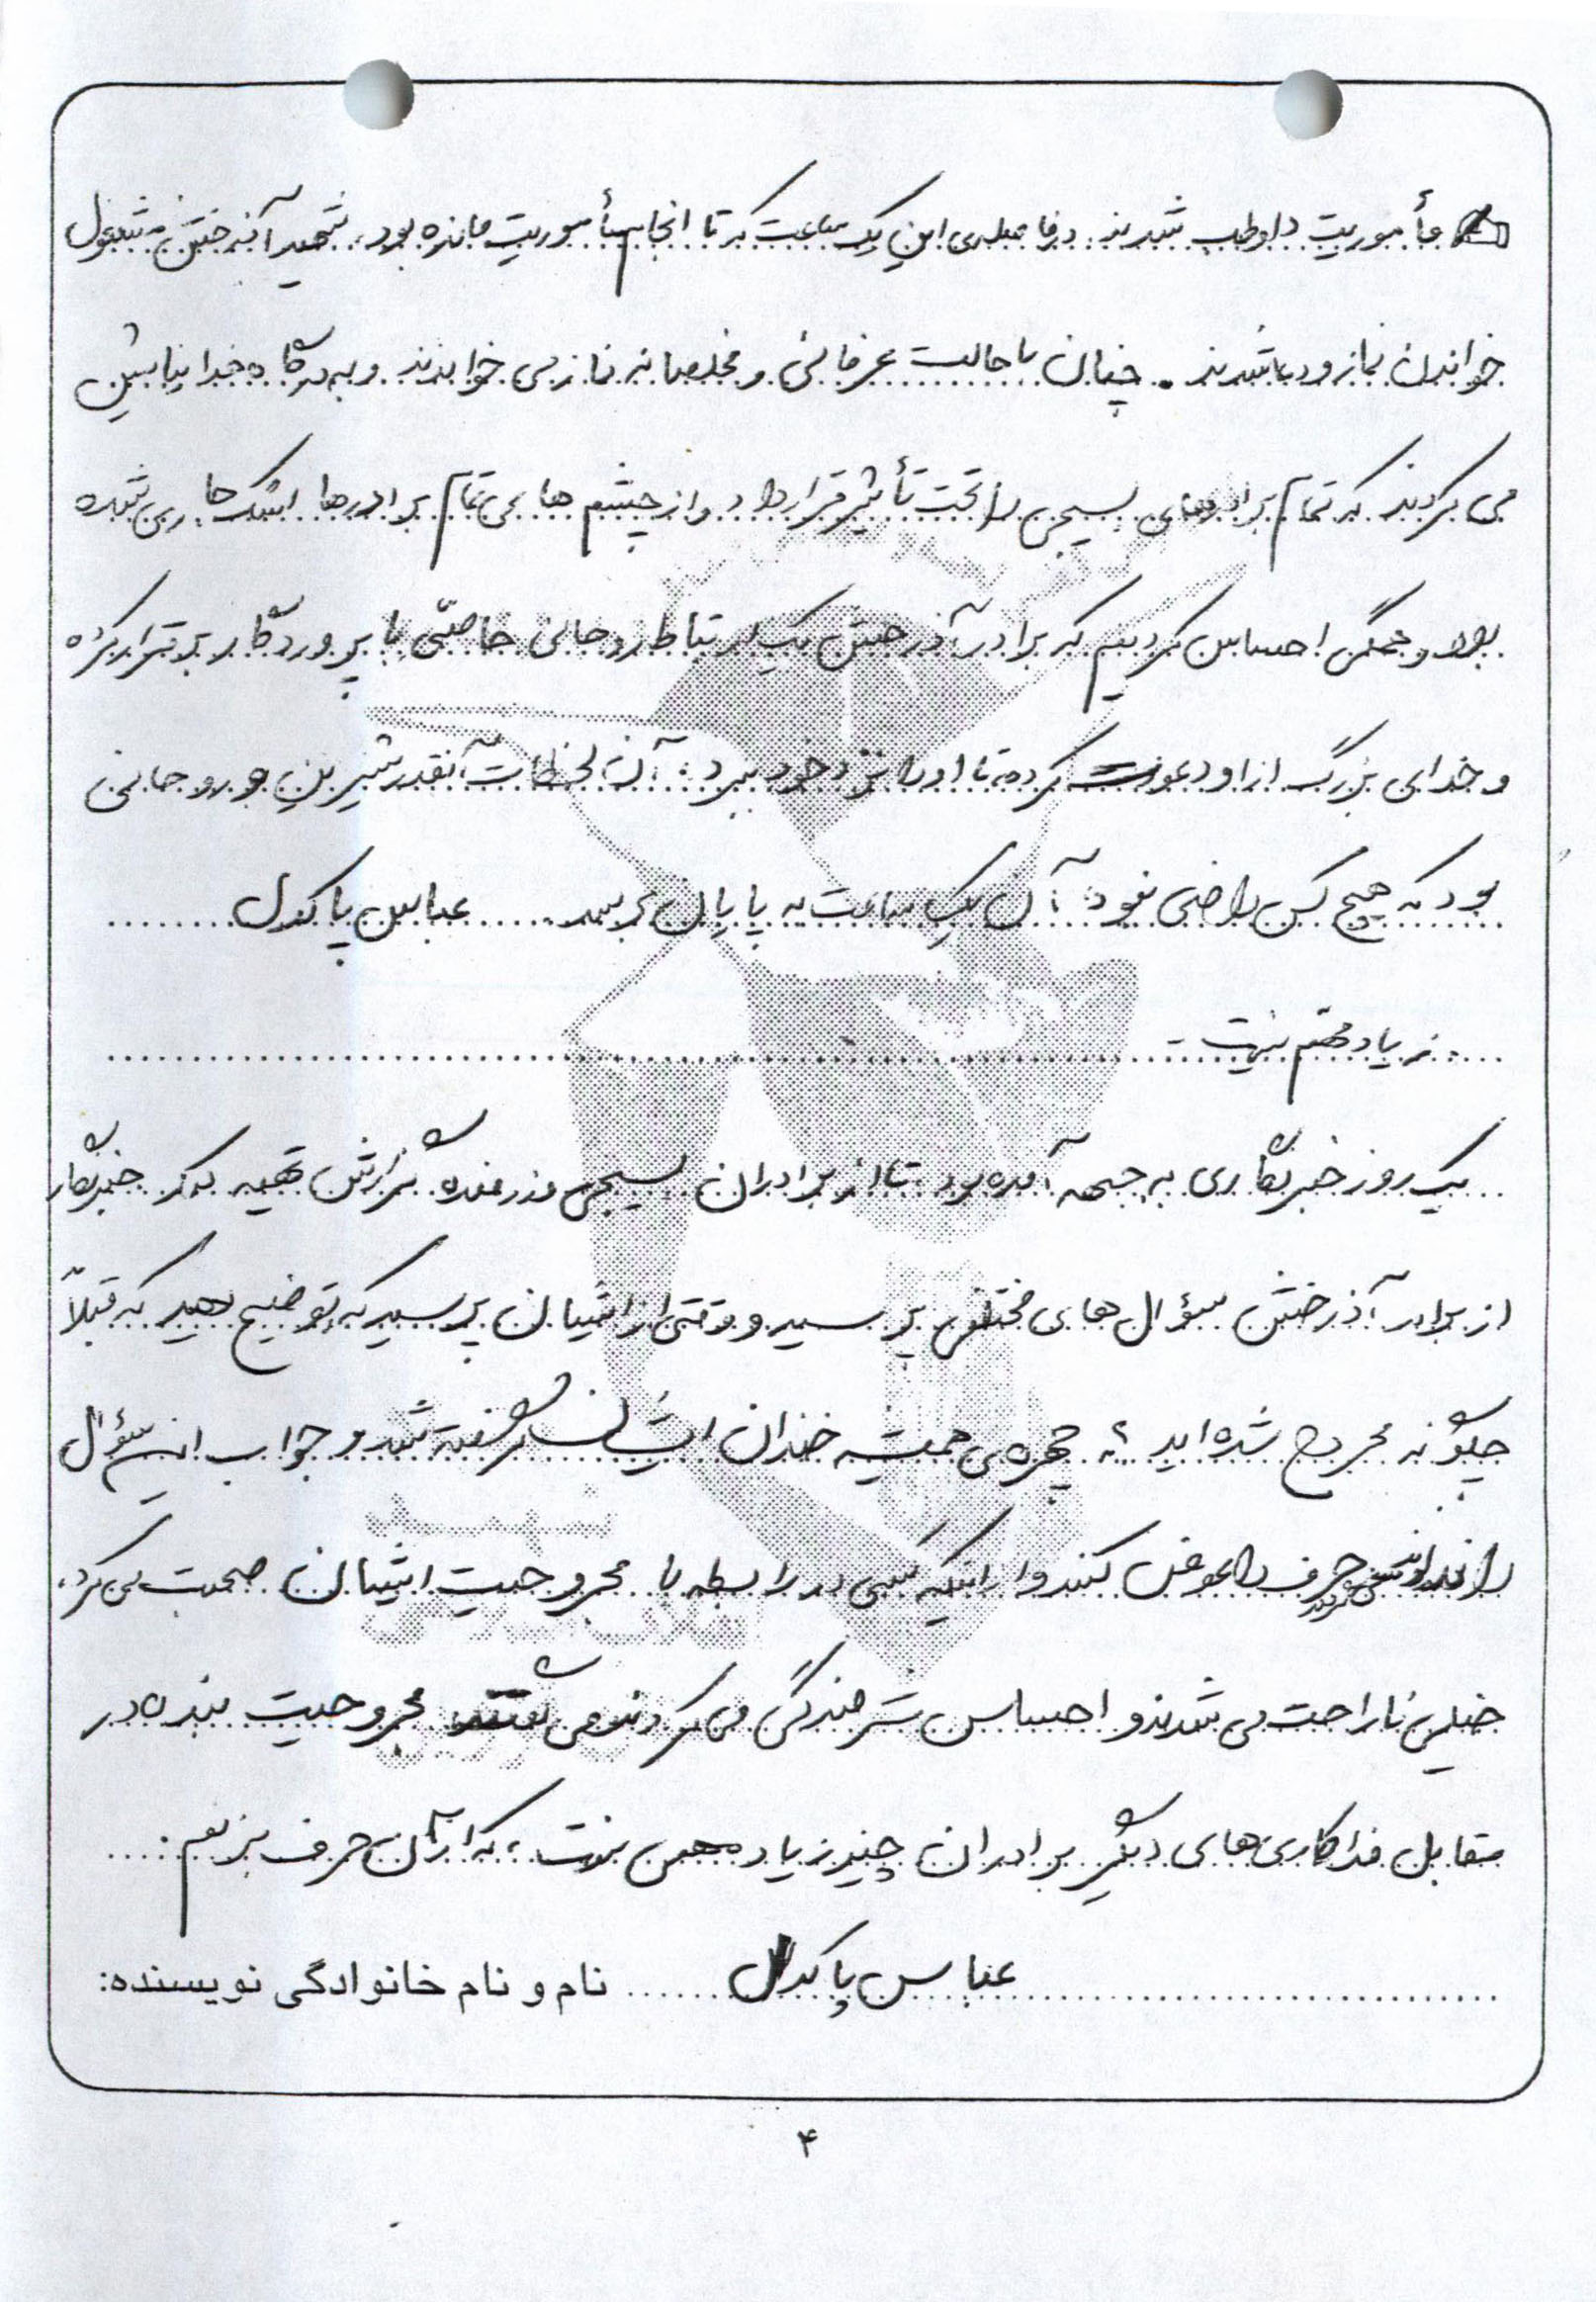 مأموریت داوطلب شدند. در فاصله‌ی این یک ساعت که تا انجام مأموریت مانده بود، شهید آذرخش مشغول
خواندن نماز و دعا شدند. چنان با حالت عرفانی و مخلصانه نماز می خواندند و به درگاه خدا نیایش
می کردند که تمام برادرهای بسیجی را تحت تأثیر قرار داد و از چشم های تمام برادرها اشک جاری شده
بود و همگی احساس کردیم که برادر آذرخش یک ارتباط روحانی خاصّی با پروردگار برقرار کرده
و خدای بزرگ از او دعوت کرده تا او را نزد خود ببرد. آن لحظات آنقدر شیرین و روحانی
بود که هیچ کس راضی نبود آن یک ساعت به پایان برسد. عباس پاکدل
زیاد مهّم نیست -
یک روز خبرنگاری به جبهه آمده بود تا از برادران بسیجی رزمنده گزارش تهیه کند خبرنگار
از برادر آذرخش سؤال های مختلفی پرسید و وقتی از ایشان پرسید که توضیح دهید که قبلاً
چگونه مجروح شده اید، چهره‌ی همیشه خندان ایشان گرفته شد و جواب این سؤال
را حرف را عوض کنند و از اینکه کسی در رابطه با مجروحیت ایشان صحبت می کرد،
خیلی ناراحت می شدند و احساس شرمندگی می کردند می گفتند مجروحیت بنده در
مقابل فداکاری های دیگر برادران چیز زیاد مهمی نیست، که از آن حرف بزنیم.
نام و نام خانوادگی نویسنده: عباس پاکدل
۴